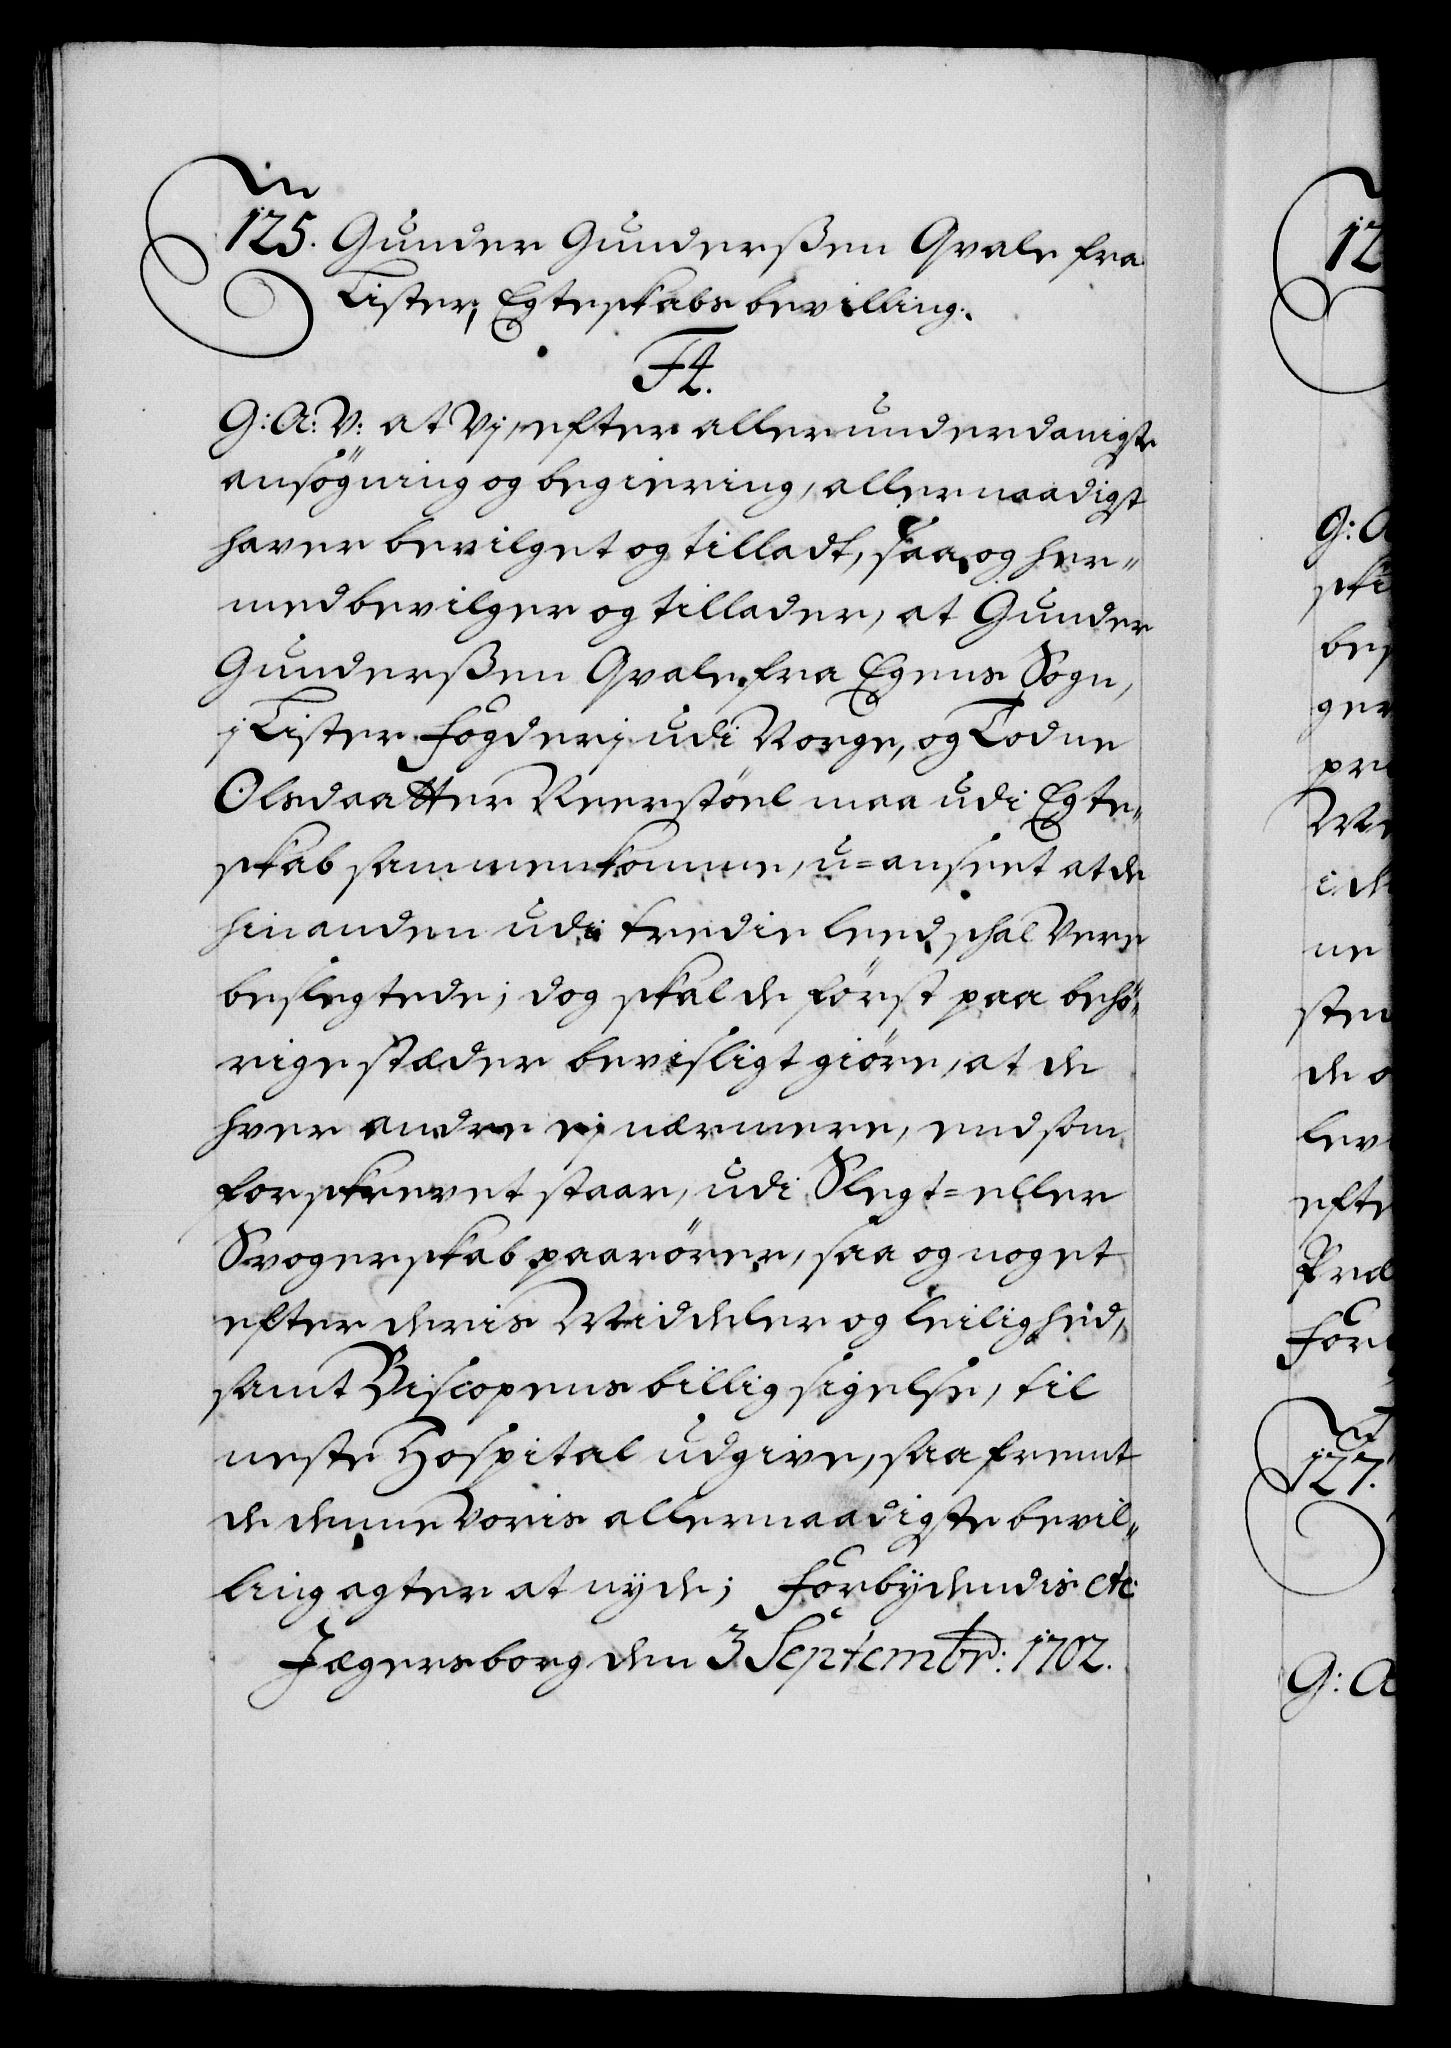 125. Gunder Gunderßen Qvale fra
Lister, Egteskabs bevilling.
F4.
G: A: V: at Vj, efter allerunderdanigste
ansögning og begiering, allernaadigst
haver bevilget og tilladt, saa og her-
med bevilger og tillader, at Gunder
Gunderßen Qvale fra Egens Sogn,
j Lister fogderj udi Norge, og Todne
Olsdaatter Reerstöel maa udi Egte-
skab sammenkomme, u=anseet at de
hinanden udi tredie leed schal Vere
beslegtede; dog skal de först paa behö-
rige stæder bevisligt giöre, at de
hver andre ej nærmere, end som
forskrevet staar, udi Slegt= eller
Svogerskab paarörer, saa og noget
efter deris Middeler og leilighed,
samt Biscopens billig sigelse, til
neste Hospital udgive, saafremt
de denne Voris allernaadigste bevil-
ling agter at nyde; forbydendis etc
Jægersborg den 3 Septembr: 1702.
12
G: A
ski
bes
ger
pr
i de
ne
sten
de o
lev
efte
For
127.
G: A